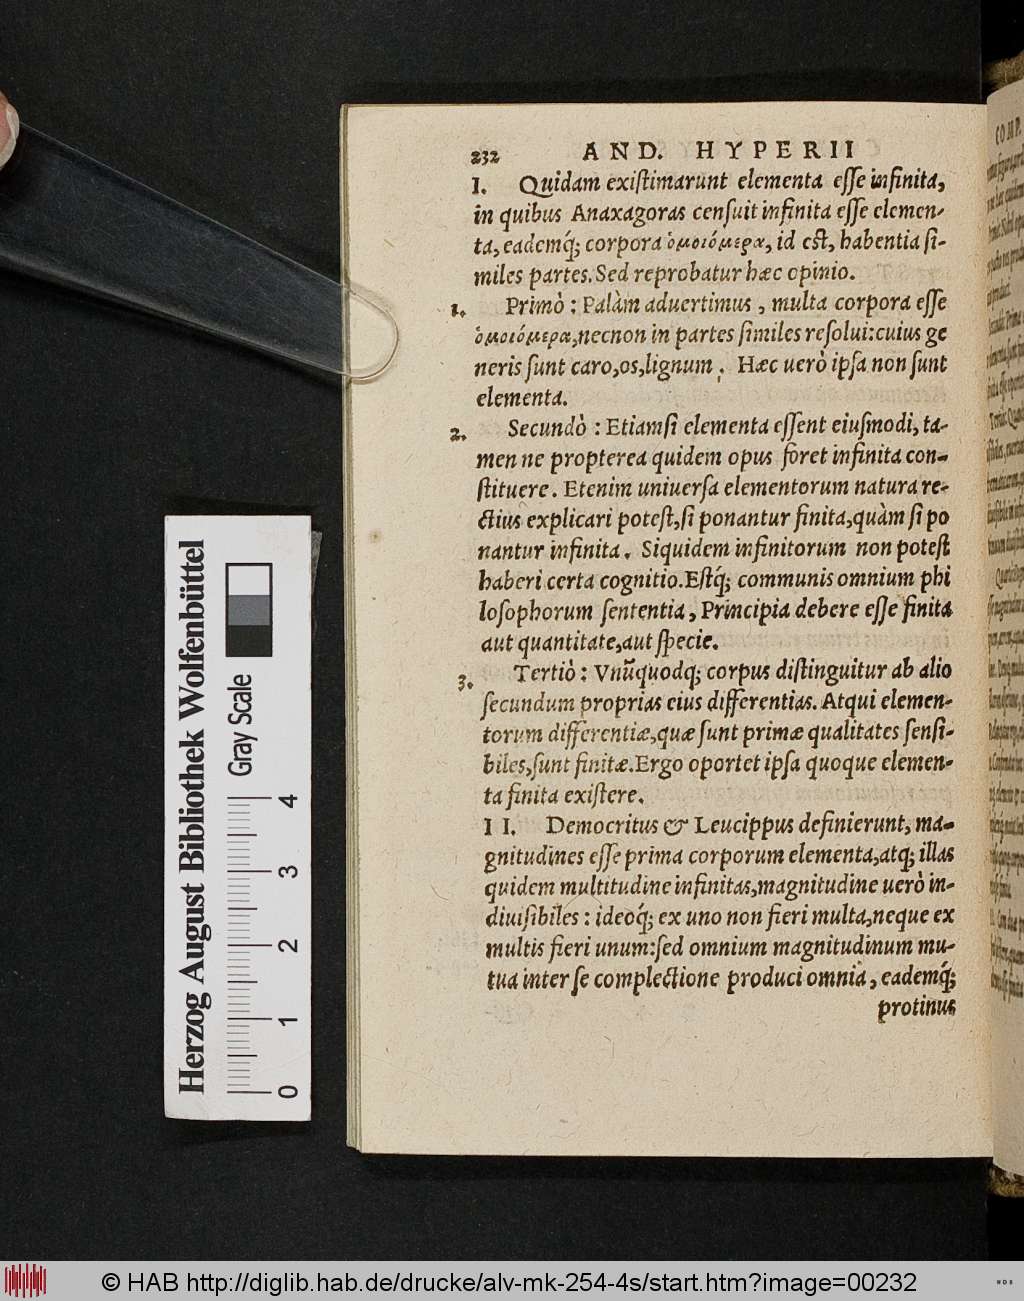 232 AND. HYPERII
I. Quidam exiſtimarunt elementa eſſe infinita,
in quibus Anaxagoras cenſuit infinita eſſe elemen-
ta, eademq́; corpora ὁμοιόμερα, id eſt, habentia ſi-
miles partes. Sed reprobatur hæc opinio.
1. Primò : Palàm aduertimus , multa corpora eſſe
ὁμοιόμερα, necnon in partes ſimiles reſolui: cuius ge
neris ſunt caro, os, lignum. Hæc uerò ipſa non ſunt
elementa.
2. Secundò : Etiamſi elementa eſſent eiuſmodi, ta-
men ne propterea quidem opus foret infinita con-
ſtituere. Etenim uniuerſa elementorum natura re-
ctius explicari poteſt, ſi ponantur finita, quàm ſi po
nantur infinita. Siquidem infinitorum non poteſt
haberi certa cognitio. Eſtq́; communis omnium phi
loſophorum ſententia, Principia debere eſſe finita
aut quantitate, aut ſpecie.
3. Tertiò : Vnũquodq; corpus diſtinguitur ab alio
ſecundum proprias eius differentias. Atqui elemen-
torum differentiæ, quæ ſunt primæ qualitates ſenſi-
biles, ſunt finitæ. Ergo oportet ipſa quoque elemen-
ta finita exiſtere.
II. Democritus & Leucippus definierunt, ma-
gnitudines eſſe prima corporum elementa, atq; illas
quidem multitudine infinitas, magnitudine uerò in-
diuiſibiles : ideoq́; ex uno non fieri multa, neque ex
multis fieri unum: ſed omnium magnitudinum mu-
tua inter ſe complectione produci omnia, eademq́;
protinus
Herzog August Bibliothek Wolfenbüttel
Gray Scale
0 1 2 3 4
COMP.
© HAB http://diglib.hab.de/drucke/alv-mk-254-4s/start.htm?image=00232